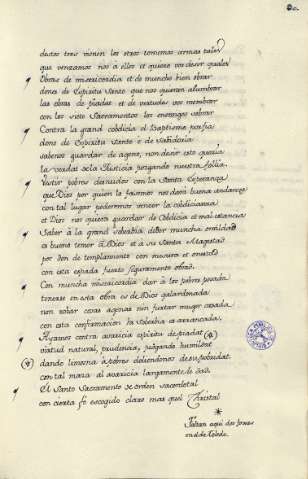 destos tres vienen los otros tomemos armas tales
que venzamos nos a ellos et quiero vos desir quales
Obras de misericordia et de mucho bien obrar
dones de Espiritu Santo que nos quieran alumbrar
las obras de piadat et de virtudes nos membrar
con los siete Sacramentos los enemigos sobrar
Contra la grand cobdicia el Baptismo porfia
dono de Espiritu Santo de sabiduria
sabernos guardar de ageno, non desir esto querria
la virtud de la Justicia jusgando nuestra follia
Vestir pobres desnudos con la Santa Esperanza
que Dios por quien lo faremos nos dará buena andanza
con tal loriga podremos vencer la cobdicia
et Dios nos quiera guardar de Cobdicia et mal
Saber á la grand sobervia dezir mucha omildad
es buena temer á Dios et á su Santa Magestad
por don de templamiento con mesura et onestad
con esta espada fuerte seguramente obrad.
Con mucha misericordia dar á los pobres posada
tenerse en esta obra es de Dios galardonada
non robar cosas agenas non furtar muger casada
con esta confirmacion la sobervia es arrancada.
Ayamos contra avaricia espiritu de piadat
virtud natural, prudencia, jusgando humildat
dando limosna á pobres doliendonos de su pobredat
con tal maza al avaricia largamente le dad.
El Santo Sacramento de orden sacerdotal
con cierta fé escogido claras mas que Cristal
*
Faltan aqui dos foxas
en el de Toledo.